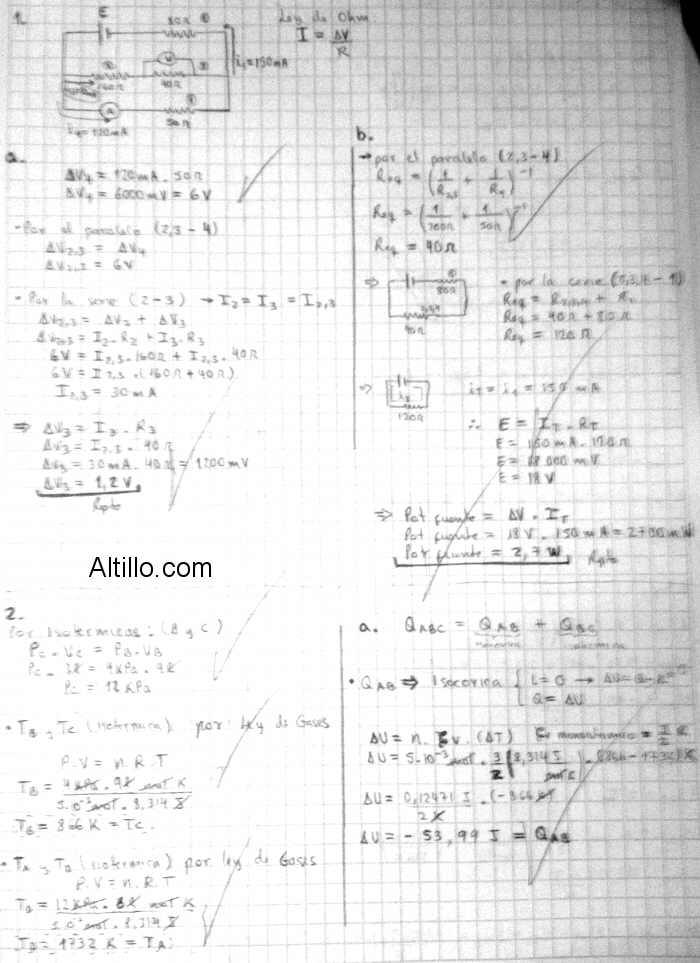 1.
E
80Ω ①
Ley de Ohm
I = ΔV/R
V
i₁ = 150mA
②
③
160Ω
40Ω
④
A
50Ω
i₄ = 120mA
a.
ΔV₄ = 120mA . 50Ω
ΔV₄ = 6000mV = 6V
- Por el paralelo (2,3 - 4)
ΔV₂,₃ = ΔV₄
ΔV₂,₃ = 6V
• Por la serie (2 - 3) → I₂ = I₃ = I₂,₃
ΔV₂,₃ = ΔV₂ + ΔV₃
ΔV₂,₃ = I₂ . R₂ + I₃ . R₃
6V = I₂,₃ . 160Ω + I₂,₃ . 40Ω
6V = I₂,₃ . (160Ω + 40Ω)
I₂,₃ = 30mA
⇒ ΔV₃ = I₃ . R₃
ΔV₃ = I₂,₃ . 40Ω
ΔV₃ = 30mA . 40Ω = 1200mV
ΔV₃ = 1,2V
Rpta
b.
→ por el paralelo (2,3 - 4)
Req = (1/R₂,₃ + 1/R₄)⁻¹
Req = (1/200Ω + 1/50Ω)⁻¹
Req = 40Ω
⇒
①
80Ω
2,3,4
40Ω
• por la serie (2,3,4 - 1)
Req = R₂,₃,₄ + R₁
Req = 40Ω + 80Ω
Req = 120Ω
⇒
120Ω
iT = i₁ = 150 mA
∴ E = IT . RT
E = 150mA . 120Ω
E = 18000mV
E = 18V
⇒ Pot fuente = ΔV . IT
Pot fuente = 18V . 150mA = 2700mW
Pot fuente = 2,7W Rpta
Altillo.com
2.
Por Isotermicas: (B y C)
PC . VC = PB . VB
PC . 3l = 4KPa . 9l
PC = 12KPa
• TB y TC (isotermica) por ley de Gases
P.V = n.R.T
TB = 4KPa . 9l mol K / 5.10⁻³mol . 8,314 J
TB = 866K = TC
• TA y TD (isotermica) por ley de Gases
P.V = n.R.T
TD = 12KPa . 6l mol K / 5.10⁻³mol . 8,314 J
TD = 1732K = TA
a. QABC = QAB + QBC
• QAB ⇒ Isocorica { L = 0 → ΔU = Q -
Q = ΔU
ΔU = n . Cv . (ΔT) Cv monoatomico = 3/2 R
ΔU = 5.10⁻³mol . 3/2 (8,314 J / mol K) . (866 - 1732) K
ΔU = 0,12471 J / 2K . (-866K)
ΔU = -53,99 J = QAB